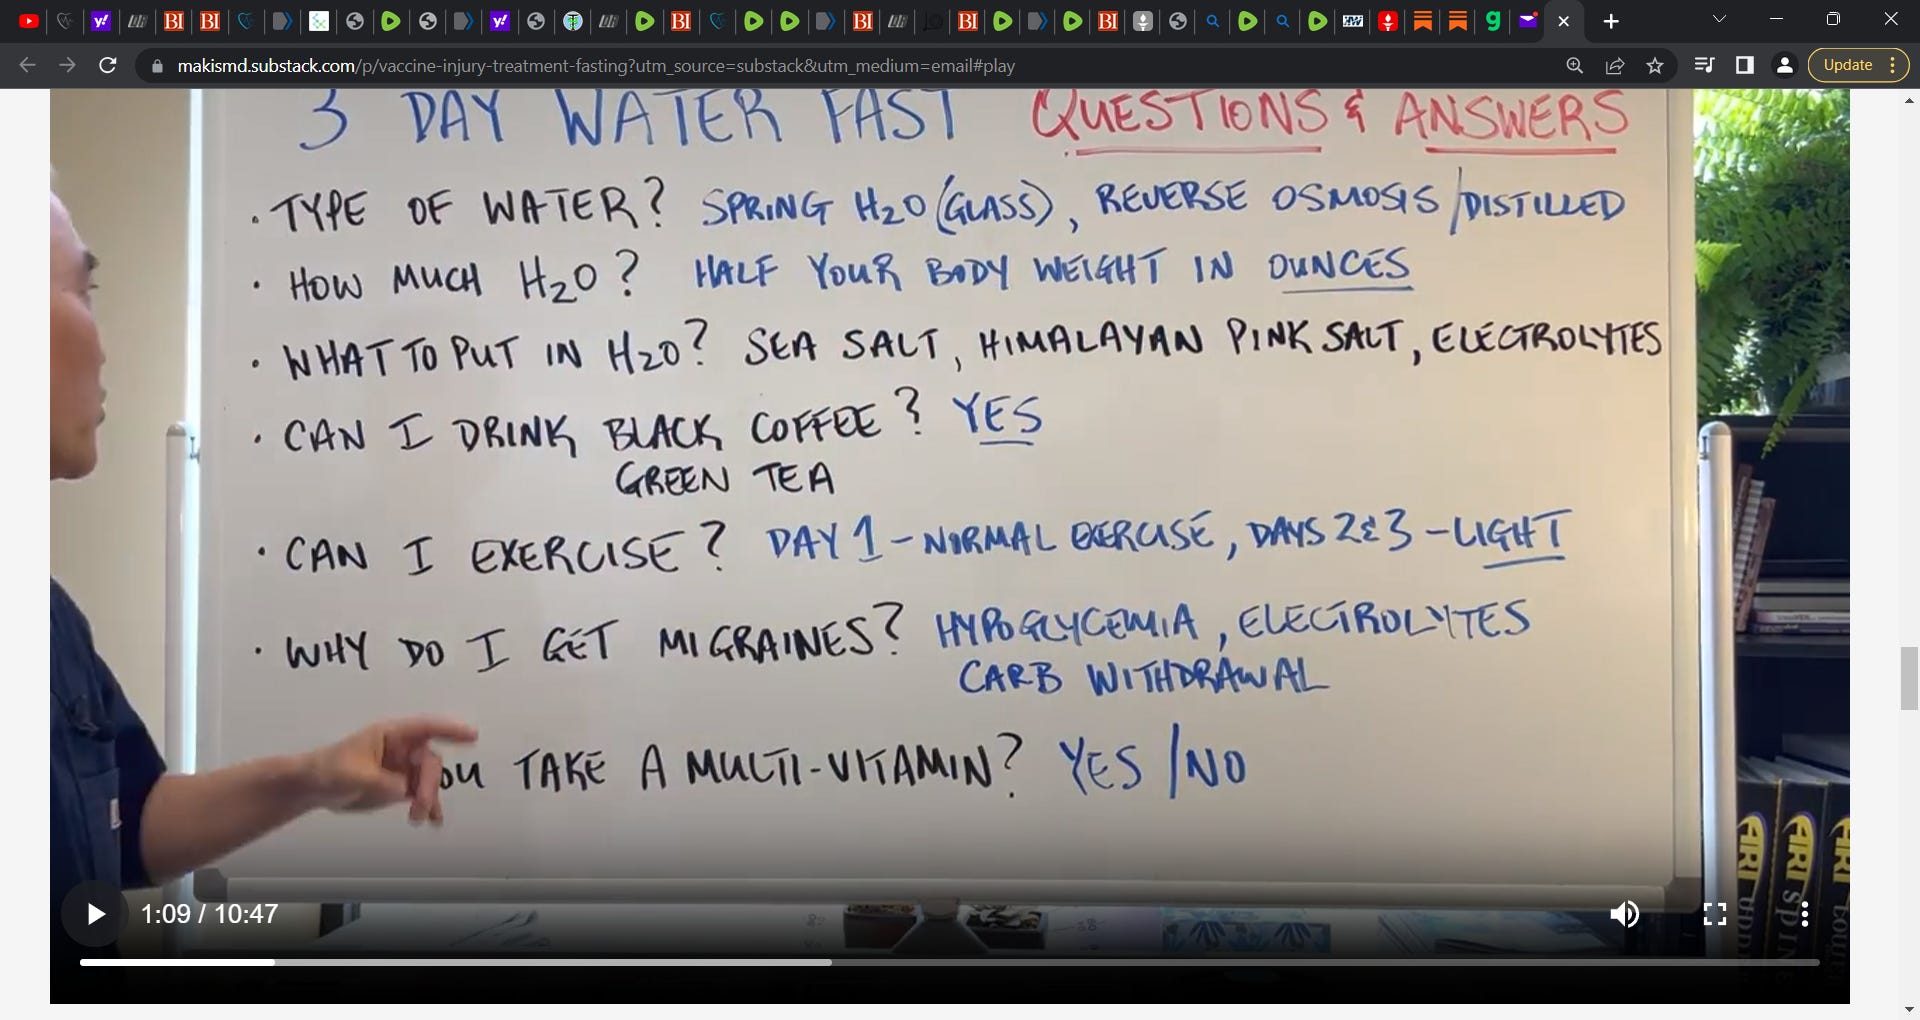 makismd.substack.com/p/vaccine-injury-treatment-fasting?utm_source=substack&utm_medium=email#play
Update
3 DAY WATER FAST QUESTIONS & ANSWERS
• TYPE OF WATER? SPRING H2O (GLASS), REVERSE OSMOSIS / DISTILLED
• HOW MUCH H2O? HALF YOUR BODY WEIGHT IN OUNCES
• WHAT TO PUT IN H2O? SEA SALT, HIMALAYAN PINK SALT, ELECTROLYTES
• CAN I DRINK BLACK COFFEE? YES
GREEN TEA
• CAN I EXERCISE? DAY 1 - NORMAL EXERCISE, DAYS 2 & 3 - LIGHT
• WHY DO I GET MIGRAINES? HYPOGLYCEMIA, ELECTROLYTES
CARB WITHDRAWAL
OU TAKE A MULTI-VITAMIN? YES / NO
1:09 / 10:47